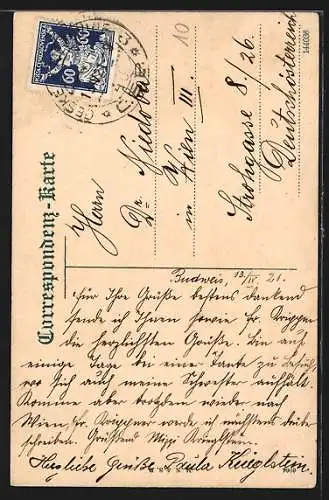 Correspondenz-Karte
Herrn
Dr. Niedoba
in Wien III.
Strohgasse 8./26.
Deutschösterreich
10
144036
60
Budweis 13./IV. 21.
Für Ihre Grüße bestens dankend
sende ich Ihnen sowie Fr.
die herzlichsten Grüße. Bin auf
einige Tage bei eine Tante zu Besuch,
wo sich auch meine Schwester aufhält.
Komme aber trotzdem wieder nach
Wien, Fr. werde ich nächstens drüber
schreiben. Grüßend Mizzi
Herzliebe Grüße Paula Küeglstein